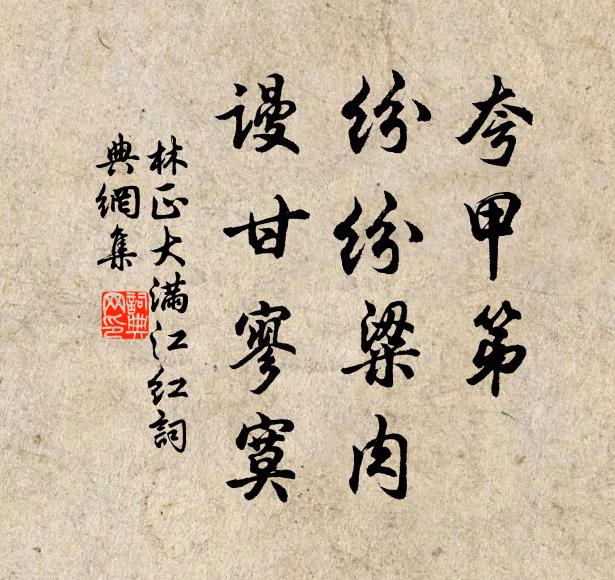 夸甲第
纷纷粱肉
谩甘寥寞
林正大满江红词
典網集
詞典网印